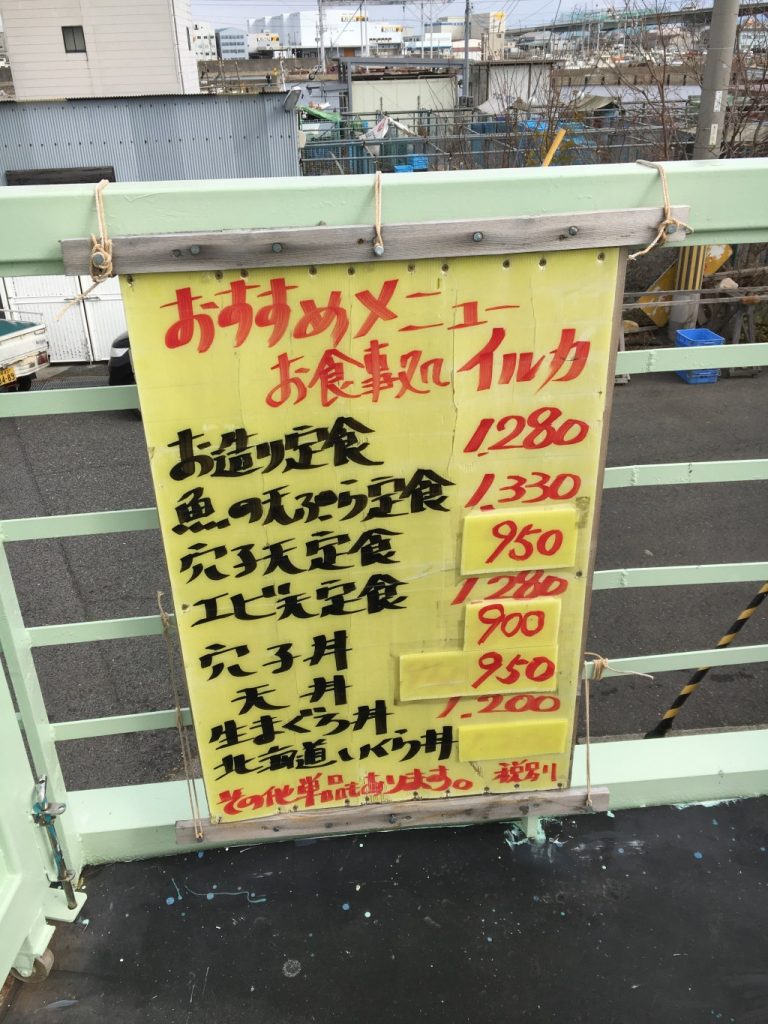 おすすめメニュー
お食事処 イルカ
お造り定食 1,280
魚の天ぷら定食 1,330
穴子天定食 950
エビ天定食 1,280
穴子丼 900
天丼 950
生まぐろ丼 1,200
北海道いくら丼
その他単品もあります。 税別